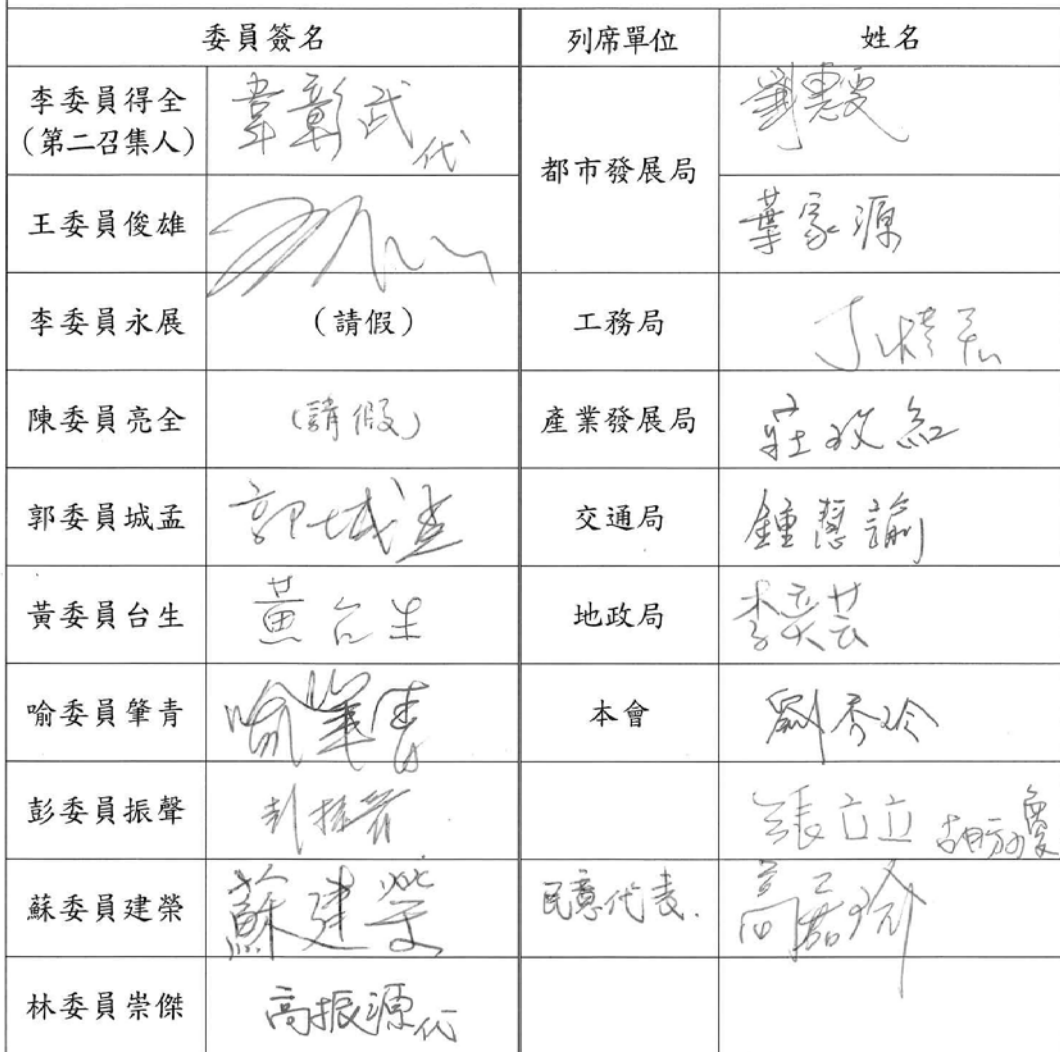 委員簽名 列席單位 姓名
李委員得全
(第二召集人)
韋彰武代
都市發展局
劉惠雯
王委員俊雄
葉家源
李委員永展 (請假) 工務局
陳委員亮全 (請假) 產業發展局
郭委員城孟 郭城孟 交通局 鍾慧諭
黃委員台生 黃台生 地政局 李奕芸
喻委員肇青 喻肇青 本會 劉秀玲
彭委員振聲 張立立 胡方瓊
蘇委員建榮 蘇建榮 民意代表. 高嘉瑜
林委員崇傑 高振源代